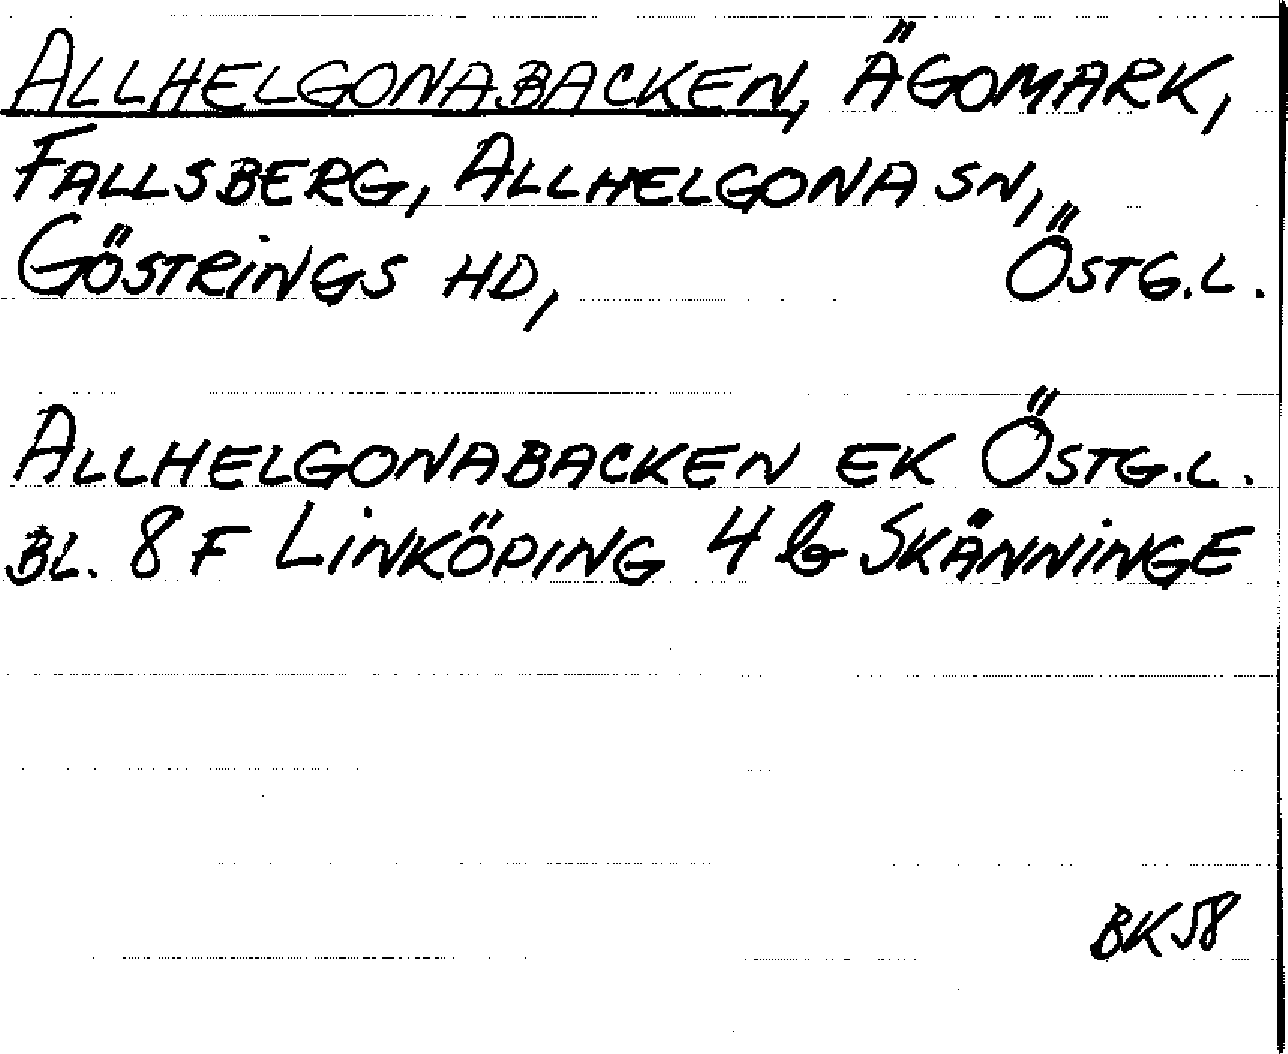 ALLHELGONABACKEN, ÄGOMARK,
FALLSBERG, ALLHELGONA SN,
GÖSTRINGS HD, ÖSTG.L.
ALLHELGONABACKEN EK ÖSTG.L.
BL. 8 F LINKÖPING 4 b SKÄNNINGE
BK58